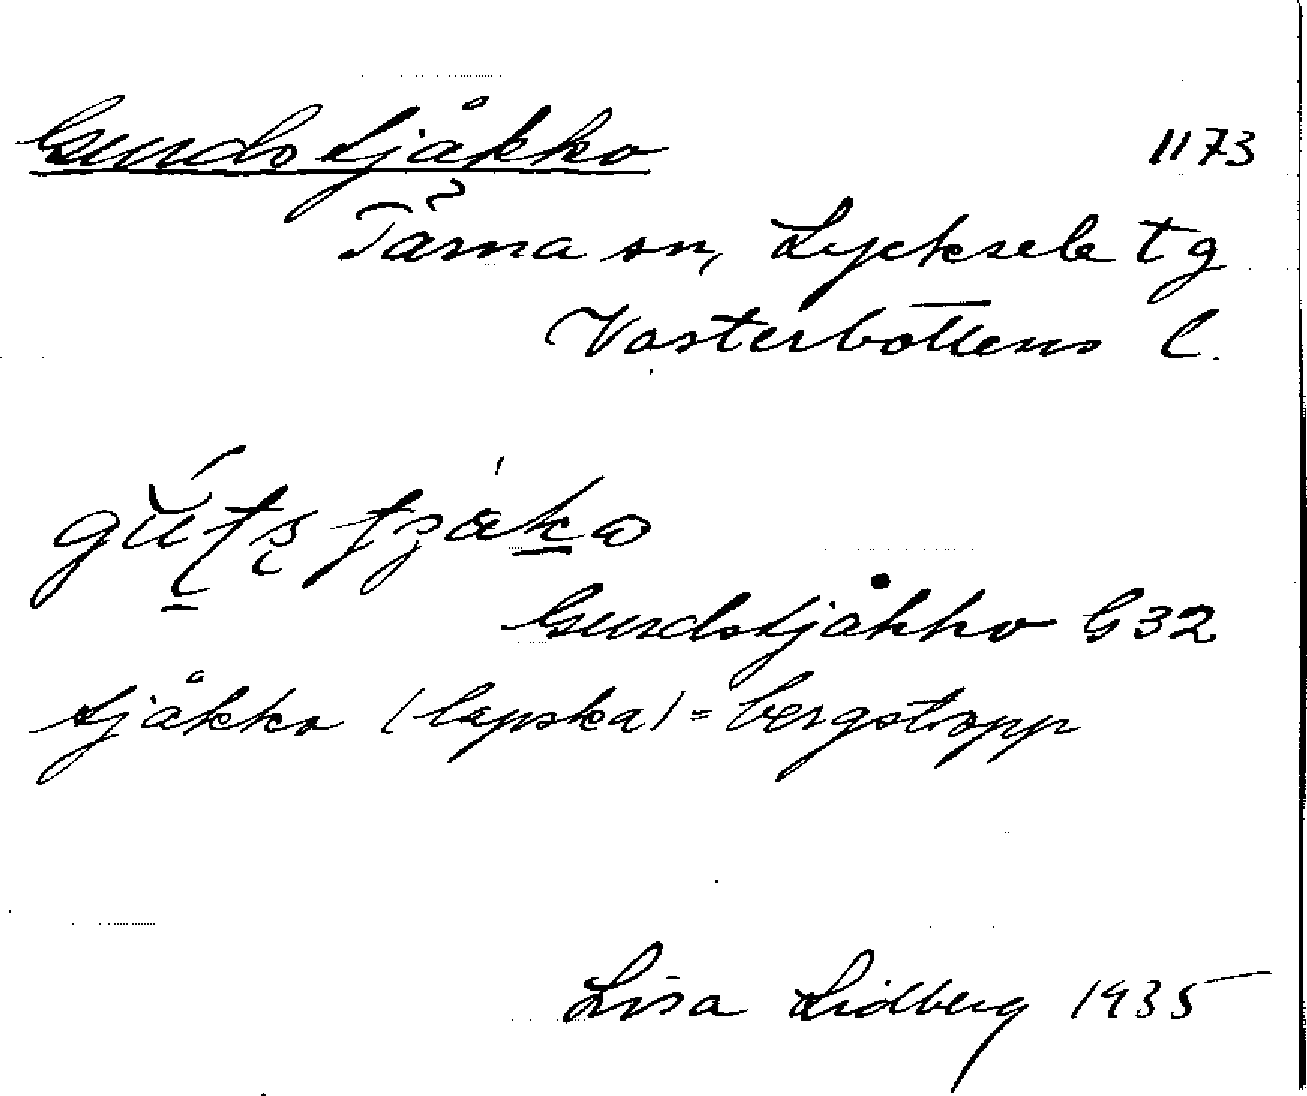 Gurdstjåkko 1173
Tärna sn, Lycksele tg
Västerbottens l.
Gurdstjåkko G32
tjåkko (lapska) = bergstopp
Lisa Lidberg 1935